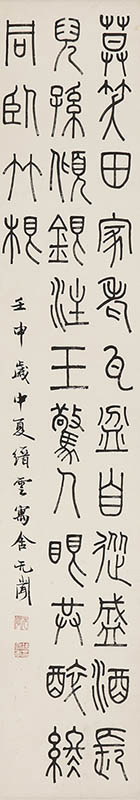 莫笑田家老瓦盆自從盛酒長
兒孫傾銀注玉驚人眼共醉終
同臥竹根
壬申歲中夏縉雲寓舍